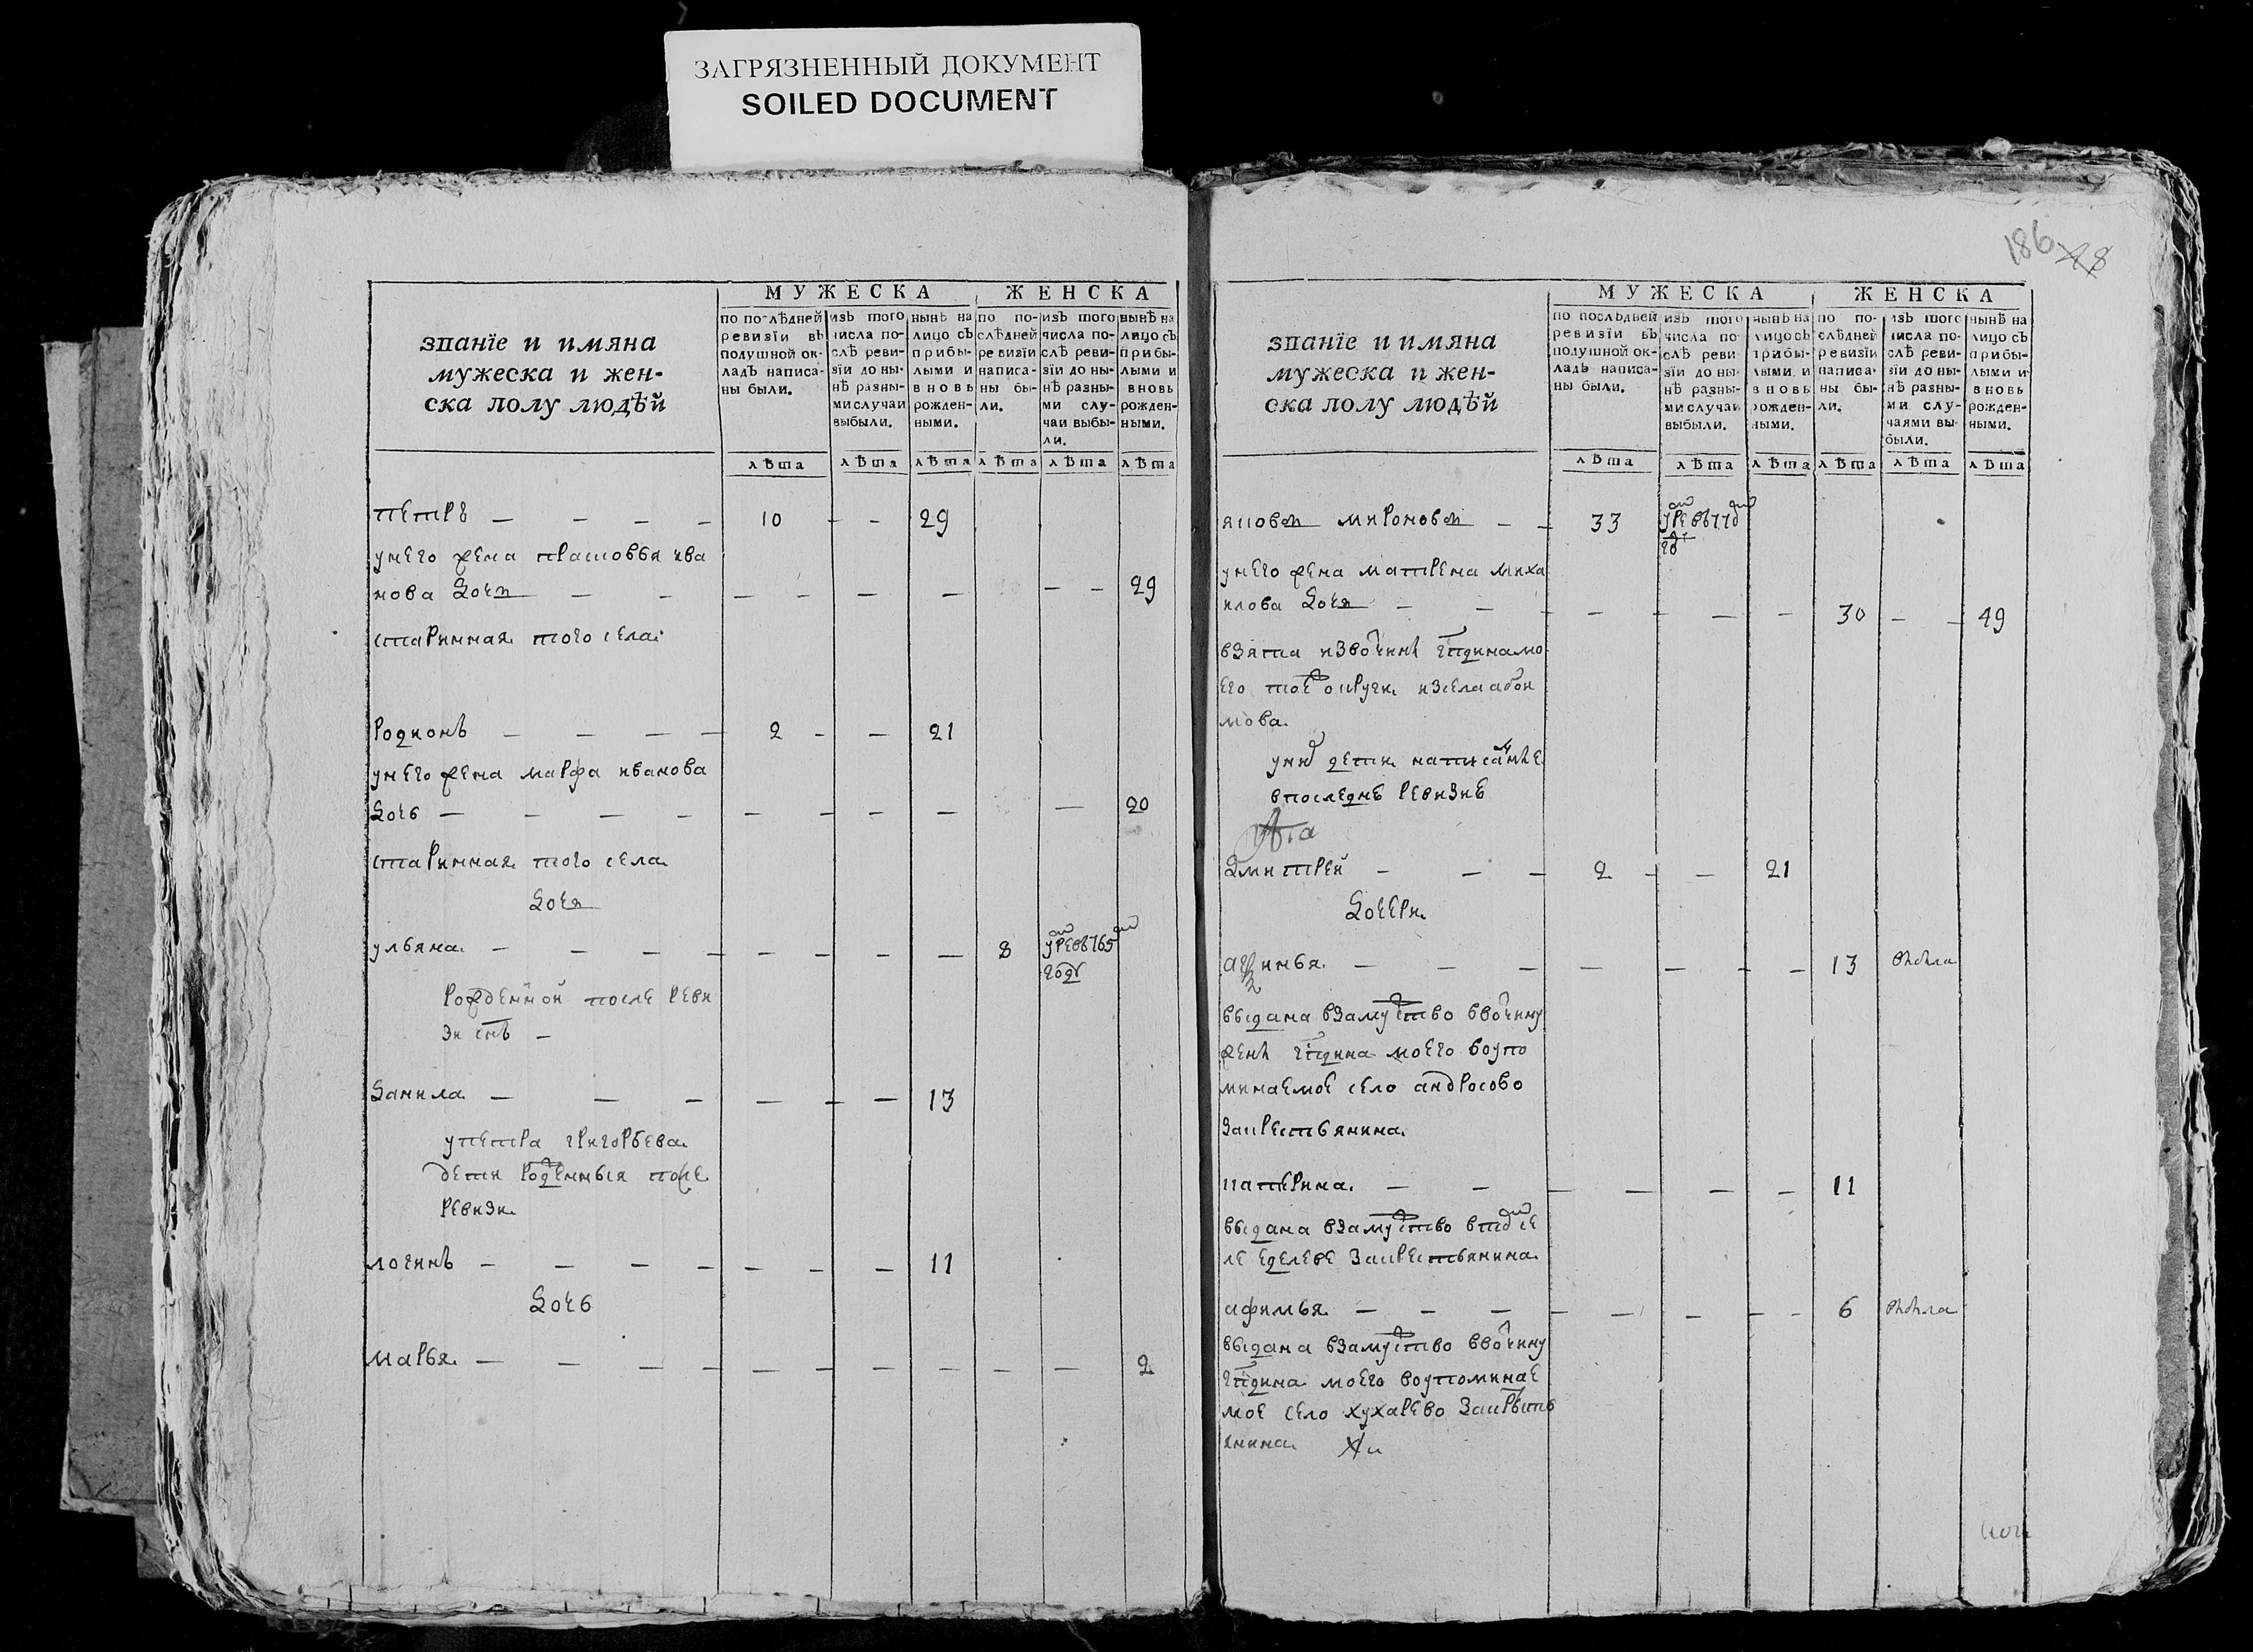 ЗАГРЯЗНЕННЫЙ ДОКУМЕНТ
SOILED DOCUMENT
званїе и имяна
мужеска и жен-
ска полу людѣй
МУЖЕСКА
ЖЕНСКА
по послѣдней ревизїи въ подушной ок-ладъ написа-ны были.
изъ того числа по-слѣ реви-зїи до ны-нѣ разны-ми случаи выбыли.
нынѣ на лицо съ прибы-лыми и вновь рожден-ными.
по по-слѣдней ревизїи написа-ны бы-ли.
изъ того числа по-слѣ реви-зїи до ны-нѣ разны-ми слу-чаи выбы-ли.
нынѣ на лицо съ прибы-лыми и вновь рожден-ными.
лѣта лѣта лѣта лѣта лѣта лѣта
петръ — — — — 10 - - 29
унего жена прасковья ива
нова дочь — — — — — — — — 29
старинная того села
родионъ — — — — 2 - — 21
унего жена марфа иванова
дочь — — — — — — — — — 20
старинная того села
дочь
ульяна — — — — — — — — 8
году
рожденной после реви
зи снъ —
данила — — — — — — 13
упетра григорьева
дети роженныя после
ревизи
логинъ — — — — — — — 11
дочь
марья — — — — — — — — — — 2
186 28
званїе и имяна
мужеска и жен-
ска полу людѣй
МУЖЕСКА
ЖЕНСКА
по послѣдней ревизїи въ подушной ок-ладъ написа-ны были.
изъ того числа по-слѣ реви-зїи до ны-нѣ разны-ми случаи выбыли.
нынѣ на лицо съ прибы-лыми и вновь рожден-ными.
по по-слѣдней ревизїи написа-ны бы-ли.
изъ того числа по-слѣ реви-зїи до ны-нѣ разны-ми слу-чаями вы-были.
нынѣ на лицо съ прибы-лыми и вновь рожден-ными.
лѣта лѣта лѣта лѣта лѣта лѣта
яковъ миронов — — 33
унего жена матрена миха
илова дочь — — — — — — — 30 — — 49
взята извочины гпдина мо
его тоё округи изсела
мова
уних дети написанные
впоследне ревизиѣ
дмитрей — — — 2 - — 21
дочери
— — — — — - — 13 выбыла
выдана взамуство ввочину
жены гпдина моего воупо
минаемое село андросово
закрестьянина
катерина — — — — — — 11
выдана взамуство втом се
ле закрестьянина
афимья — — — — — — — - 6 выбыла
выдана взамуство ввочину
гпдина моего воупоминае
мое село кухарево закресть
янина